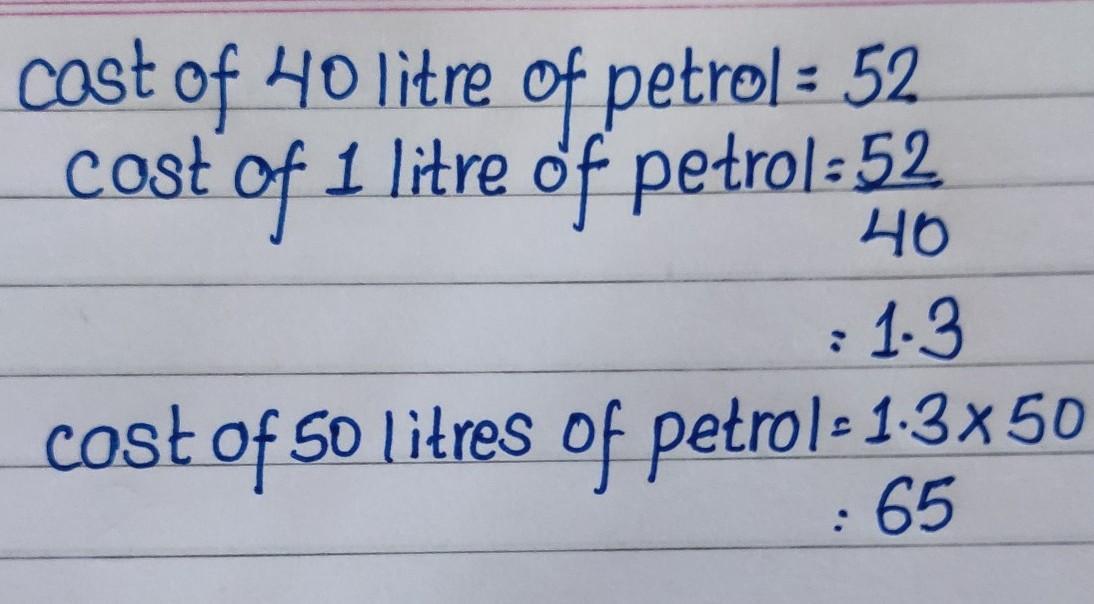 cost of 40 litre of petrol = 52
cost of 1 litre of petrol = 52
40
= 1.3
cost of 50 litres of petrol = 1.3 x 50
= 65